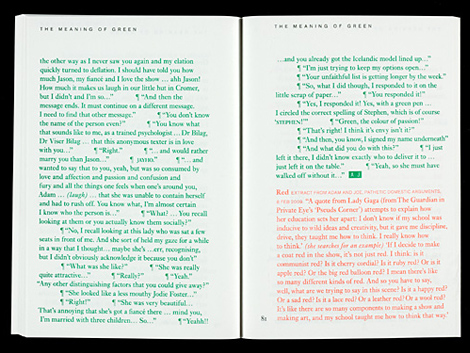 THE MEANING OF GREEN
the other way as I never saw you again and my elation
quickly turned to deflation. I should have told you how
much Jason, my fiancé and I love the show … ahh Jason!
How much it makes us laugh in our little hut in Cromer,
but I didn't and I'm so…” ¶ “And then the
message ends. It must continue on a different message.
I need to find that other message.” ¶ “You don't know
the name of the person even?” ¶ “You know what
that sounds like to me, as a trained psychologist … Dr Bilag,
Dr Viser Bilag … that this anonymous texter is in love
with you…” ¶ “Right.” ¶ “… and would rather
marry you than Jason…” ¶ ¶ “… and
wanted to say that to you, yeah, but was so consumed by
love and affection and passion and confusion and
fury and all the things one feels when one's around you,
Adam … (laugh) … that she was unable to contain herself
and had to rush off. You know what, I'm almost certain
I know who the person is…” ¶ “What? … You recall
looking at them or you actually know them socially?”
¶ “No, I recall looking at this lady who was sat a few
seats in front of me. And she sort of held my gaze for a while
in a way that I thought … maybe she's …err, recognising,
but I didn't obviously acknowledge it because you don't”
¶ “What was she like?” ¶ “She was really
quite attractive…” ¶ “Really?” ¶ “Yeah.”
“Any other distinguishing factors that you could give away?”
¶ “She looked like a less mouthy Jodie Foster…”
¶ “Right!” ¶ “She was very beautiful…
That's annoying that she's got a fiancé there … mind you,
I'm married with three children… So…” ¶ “Yeahh!!
THE MEANING OF GREEN
…and you already got the Icelandic model lined up…”
¶ “I'm just trying to keep my options open…”
¶ “Your unfaithful list is getting longer by the week.”
¶ “So, what I did though, I responded to it on the
little scrap of paper…” ¶ “You responded it!”
¶ “Yes, I responded it! Yes, with a green pen …
I circled the correct spelling of Stephen, which is of course
'STEPHEN'!” ¶ “Green, the colour of passion!”
¶ “That's right! I think it's envy isn't it?”
¶ “And then, you know, I signed my name underneath”
¶ “And what did you do with this?” ¶ “I just
left it there, I didn't know exactly who to deliver it to …
just left it on the table.” ¶ “Yeah, so she must have
walked off without it…”
Red EXTRACT FROM ADAM AND JOE, PATHETIC DOMESTIC ARGUMENTS,
“A quote from Lady Gaga (from The Guardian in
Private Eye's 'Pseuds Corner') attempts to explain how
her education sets her apart: I don't know if my school was
inducive to wild ideas and creativity, but it gave me discipline,
drive, they taught me how to think. I really know how
to think.' (she searches for an example) 'If I decide to make
a coat red in the show, it's not just red. I think: is it
communist red? Is it cherry cordial? Is it ruby red? Or is it
apple red? Or the big red balloon red? I mean there's like
so many different kinds of red. And so you have to say,
well, what are we trying to say in this scene? Is it a happy red?
Or a sad red? Is it a lace red? Or a leather red? Or a wool red?
It's like there are so many components to making a show and
making art, and my school taught me how to think that way.'
81